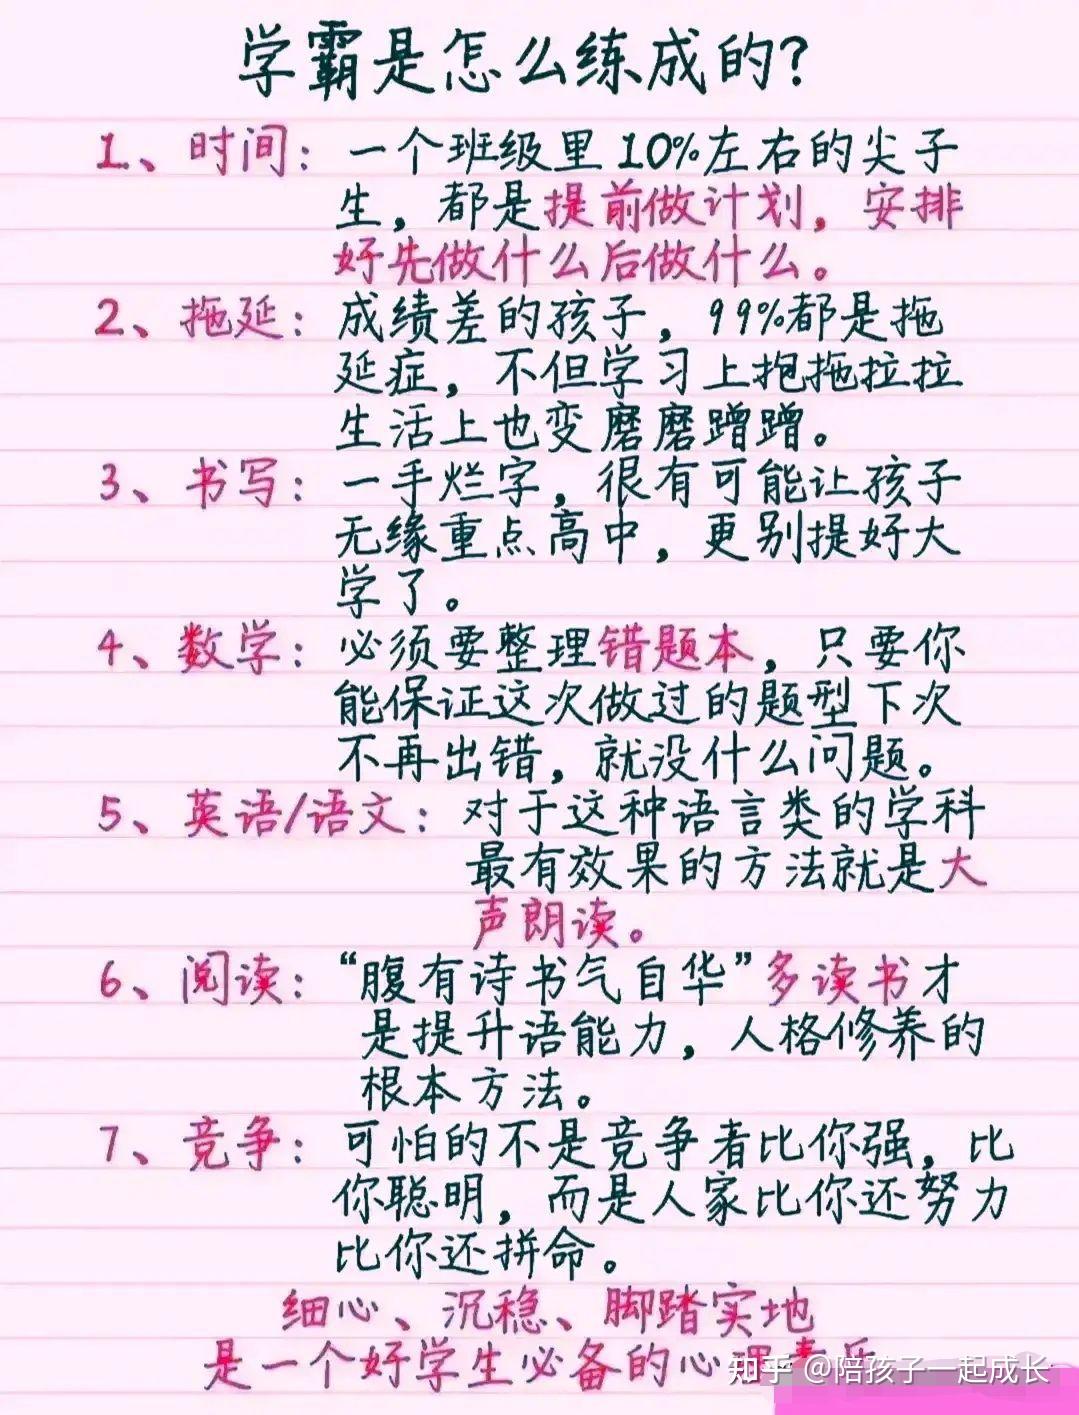 学霸是怎么练成的?
1、时间：一个班级里10%左右的尖子
生，都是提前做计划，安排
好先做什么后做什么。
2、拖延：成绩差的孩子，99%都是拖
延症，不但学习上抱拖拉拉
生活上也变磨磨蹭蹭。
3、书写：一手烂字，很有可能让孩子
无缘重点高中，更别提好大
学了。
4、数学：必须要整理错题本，只要你
能保证这次做过的题型下次
不再出错，就没什么问题。
5、英语/语文：对于这种语言类的学科
最有效果的方法就是大
声朗读。
6、阅读：“腹有诗书气自华”多读书才
是提升语能力，人格修养的
根本方法。
7、竞争：可怕的不是竞争者比你强，比
你聪明，而是人家比你还努力
比你还拼命。
细心、沉稳、脚踏实地
是一个好学生必备的心理
知乎 @陪孩子一起成长